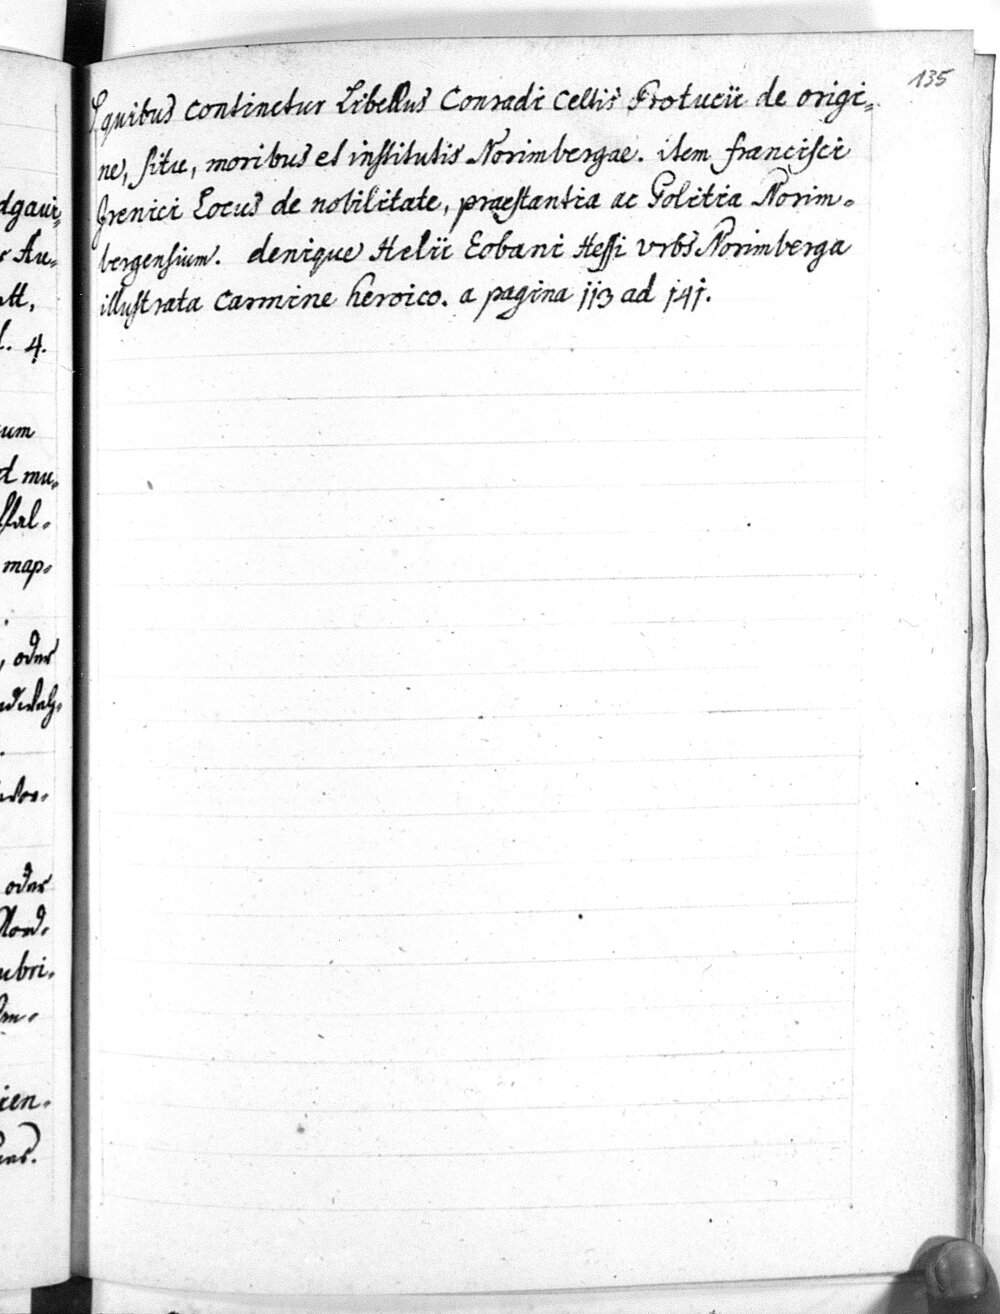 135
quibus continetur Libellus Conradi Celtis Protucii de origi-
ne, situ, moribus et institutis Norimbergae. item francisci
Irenici Locus de nobilitate, praestantia ac Politia Norim-
bergensium. denique Helii Eobani Hessi vrbs Norimberga
illustrata carmine heroico. a pagina 113 ad 141.
dgaui-
r Au-
att,
l. 4.
um
d mu-
map-
, oder
oder
Nord-
ubri-
ien-